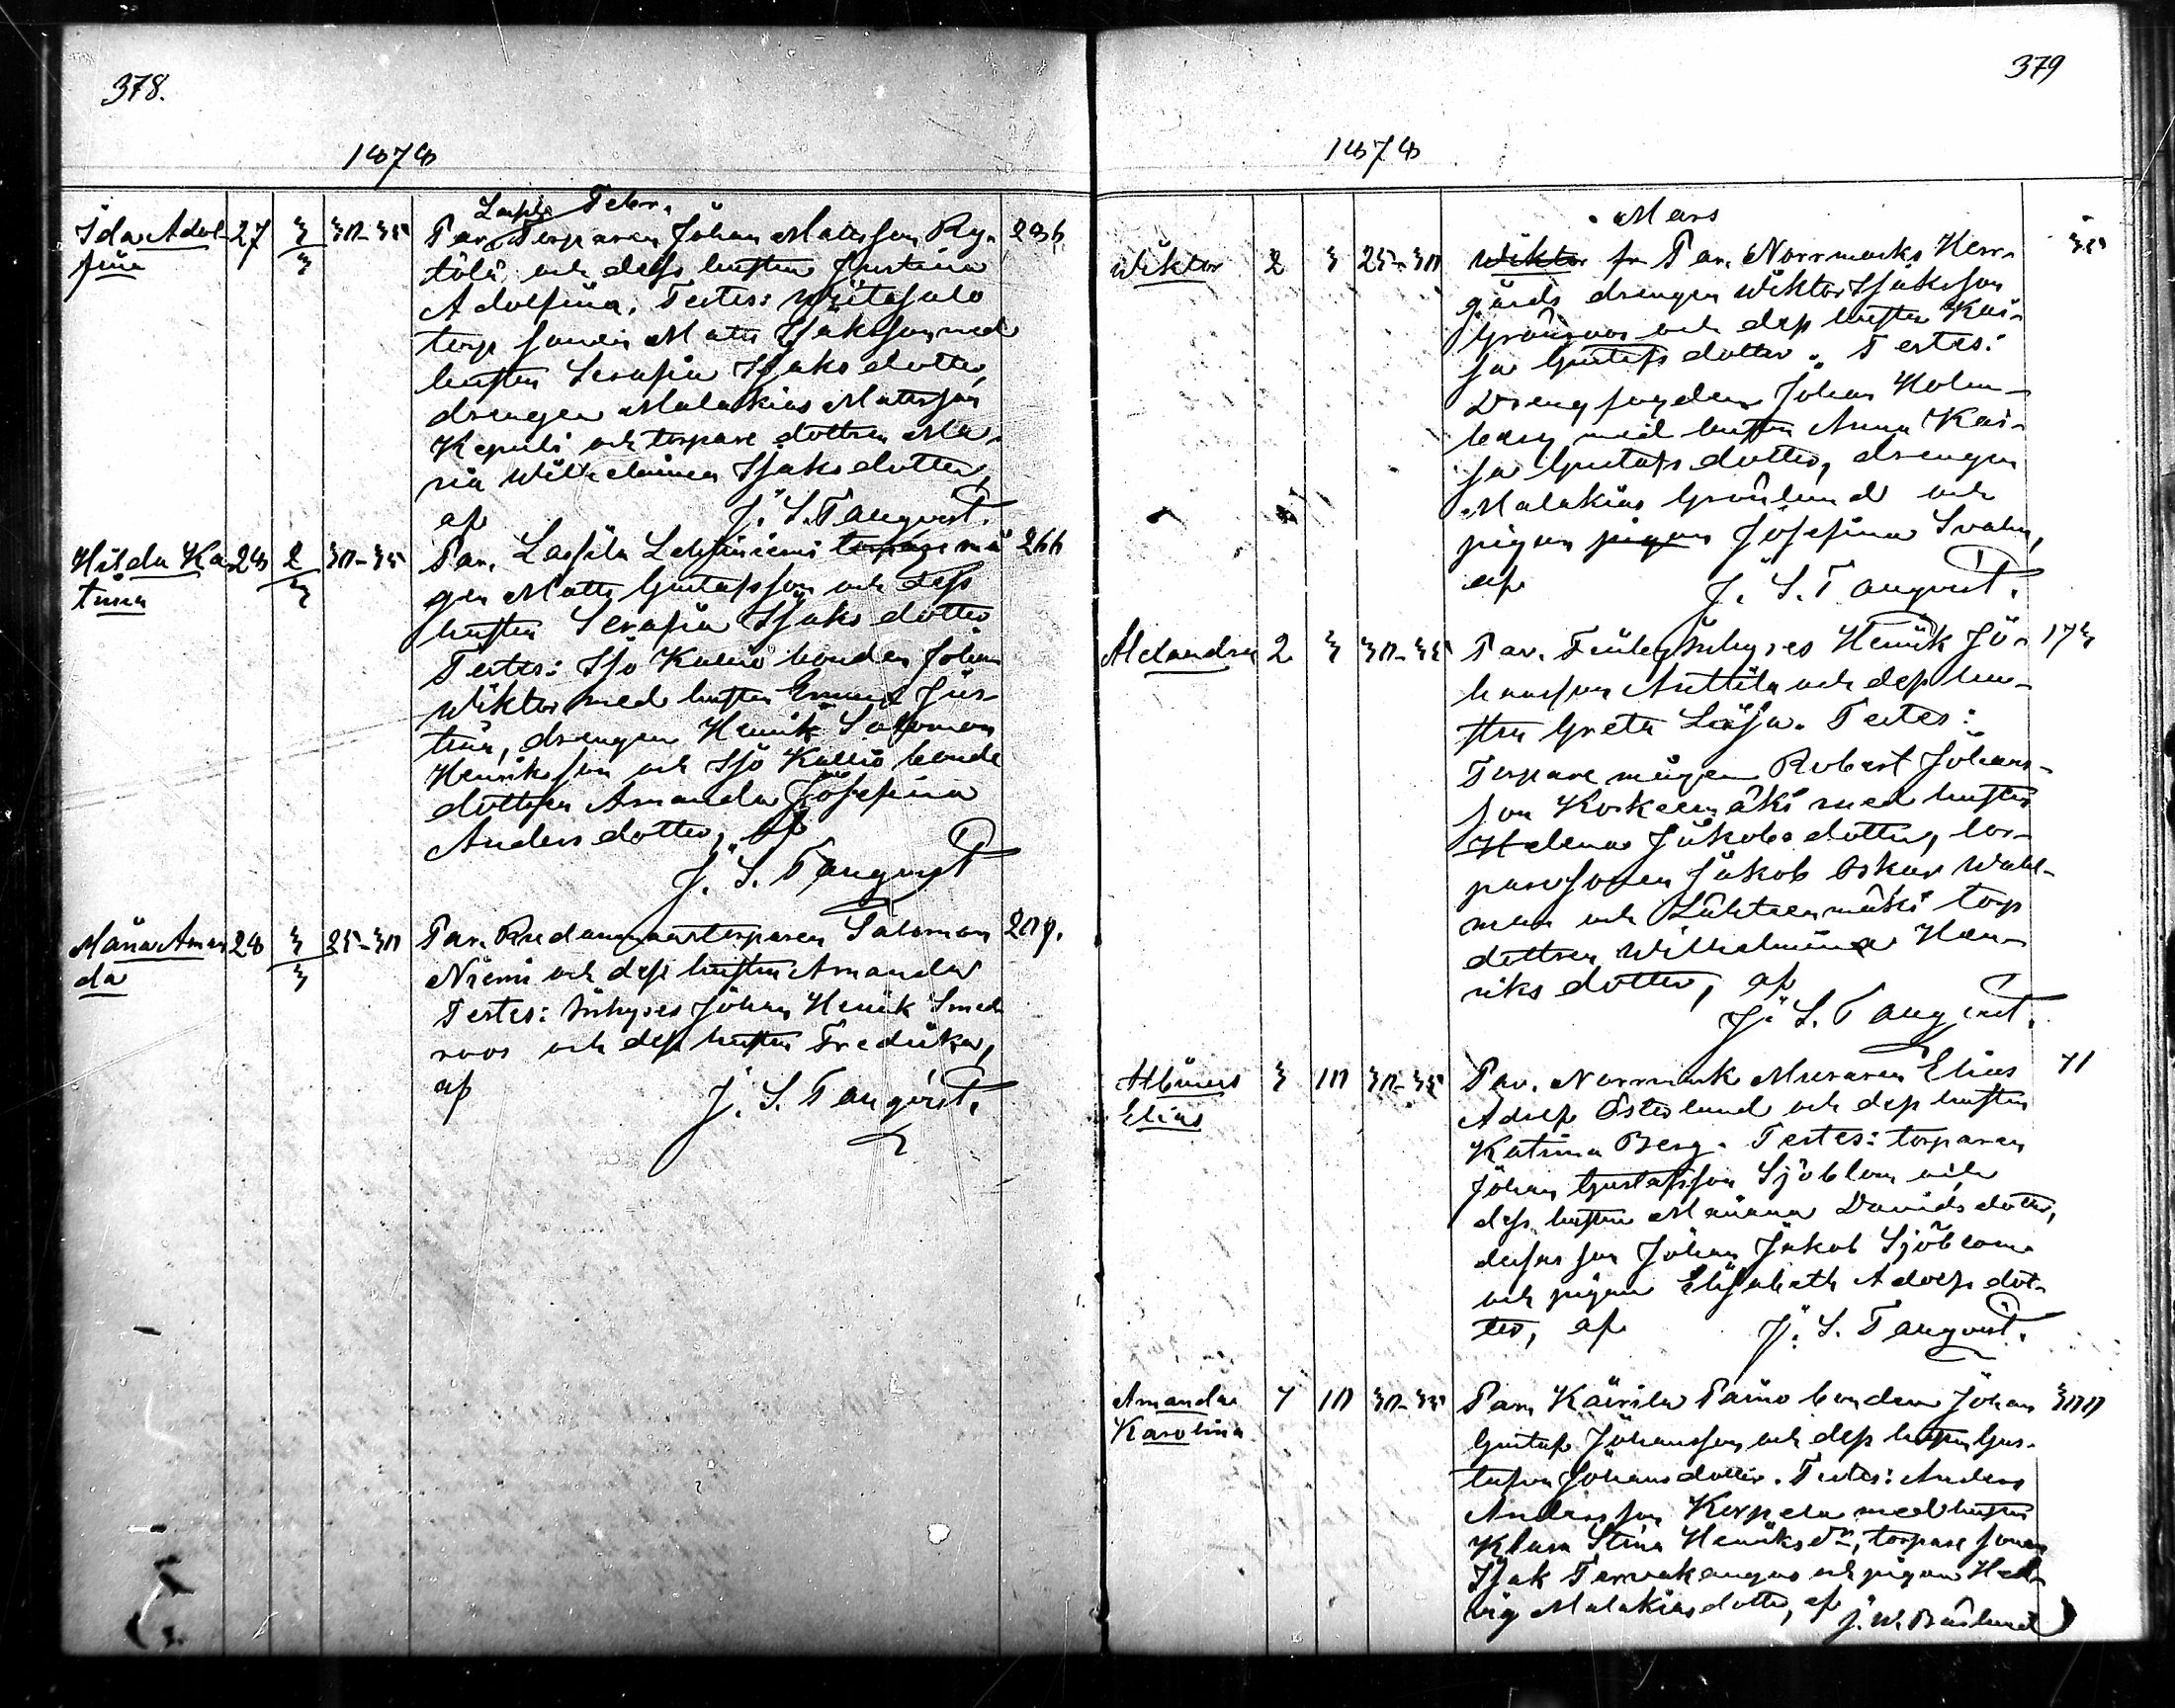 378.
1878
Febr.
Ida Adol-
fina
27
3
3
30-35
Par. Torparen Johan Matsson Ry-
tölä och dess hustru Justina
Adolfina. Testes: Wiitasalo
torp sonen Mats Isaksson med
hustru Serafia Isaksdotter,
drengen Malakias Matsson
Kepuli och torpare dottren Ma-
ria Wilhelmina Isaksdotter,
af J. S. Tanqvist.
236
Hilda Ka-
trina
28
2
3
30-35
Par. Lassila torpare må-
gen Matts Gustafsson och dess
hustru Serafia Isaksdotter
Testes: Iso Kallio bonden Johan
Wiktor med hustru Emma Jus-
tina, drengen Henrik Salomon
Henriksson och Iso Kallio bonde
dottren Amanda Josefina
Andersdotter, af
J. S. Tanqvist
266
Maria Aman-
da
28
3
3
25-30
Par. Rudanmaa torparen Salomon
Niemi och dess hustru Amanda
Testes: Inhyses Johan Henrik Smed-
roos och dess hustru Fredrika,
af J. S. Tanqvist.
209.
379
1878
Mars
Wiktor
2
3
25-30
Wiktor fr Par. Norrmarks Herr-
gårds drengen Wiktor Isaksson
Grönroos och dess hustru Kai-
sa Gustafsdotter. Testes:
Drengfogden Johan Holm-
berg med hustru Anna Kai-
sa Gustafsdotter, drengen
Malakias Grönlund och
pigan pigan Josefina Svahn,
af J. S. Tanqvist.
35
Alexandra
2
3
30-35
Par. Inhyses Henrik Jo-
hansson Anttila och dess hu-
stru Greta Lisa. Testes:
Torpare mågen Robert Johans-
son Koskeenmäki med hustru
Helena Jakobsdotter, tor-
pare sonen Jakob Oskar Wahl-
man och Lähteenmäki torp
dottren Wilhelmina Hen-
riksdotter, af
J. S. Tanqvist.
173
Albinus
Elias
3
10
30-35
Par. Norrmark Muraren Elias
Adolf Österlund och dess hustru
Katrina Berg. Testes: torparen
Johan Gustafsson Sjöblom och
dess hustru Mariana Davidsdotter,
deras son Johan Jakob Sjöblom
och pigan Elisabeth Adolfsdot-
ter, af J. S. Tanqvist.
71
Amanda
Karolina
7
10
30-35
Par. Kairila Paino bonden Johan
Gustaf Johansson och dess hustru Gus-
tafva Johansdotter. Testes: Anders
Andersson Korpela med hustru
Klara Stina Henriksdr, torpare sonen
Isak Tervakangas och pigan Hed-
vig Malakiasdotter, af
J. W. Båslund
300